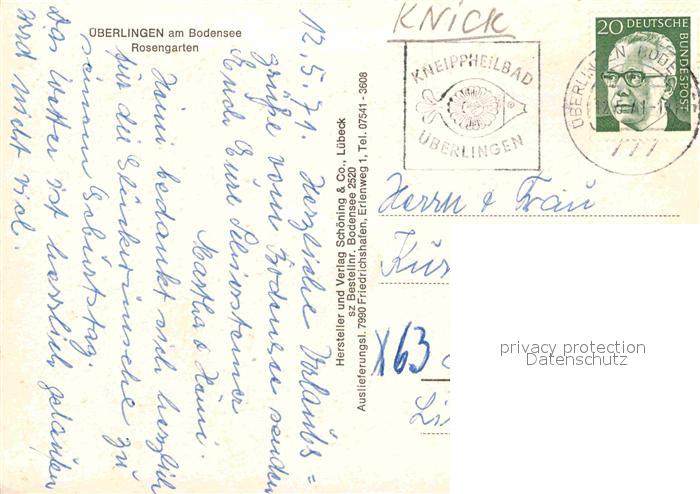 ÜBERLINGEN am Bodensee
Rosengarten
12.5.71. Herzliche Urlaubs=
grüße vom Bodensee senden
Euch Eure
Martha & Heini.
Heini bedankt sich herzlich
für die Glückwünsche zu
seinem Geburtstag.
Das Wetter ist herrlich gelaufen
wird nicht viel.
Hersteller und Verlag Schöning & Co., Lübeck
sz Bestellnr. Bodensee 2520
Auslieferungsl. 7990 Friedrichshafen, Erlenweg 1, Tel. 07541 - 3608
KNICK
KNEIPPHEILBAD
ÜBERLINGEN
20 DEUTSCHE
BUNDESPOST
ÜBERLINGEN
777
Herrn & Frau
X63
privacy protection
Datenschutz